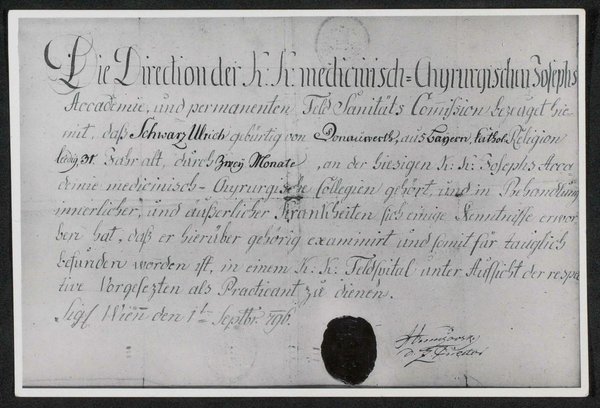 Die Direction der K: K: medicinisch=Chyrurgischen Josephs
Accademie, und permanenten Feld Sanitäts Com̅ission bezeuget hie
mit, daß Schwarz Ulrich gebürtig von Donauwerth, aus Bayern, kathol: Religion
ledig 31. Jahr alt, durch zwey Monate, an der hiesigen K: K: Josephs Acca
demie medicinisch-Chyrurgische Collegien gehört, und in Behandlung
innerlicher, und äußerlicher Krankheiten sich einige Kenntnisse erwor
ben hat, daß er hierüber gehörig examinirt und somit für tauglich
befunden worden ist, in einem K: K: Feldspital unter Aufsicht der respec
tive Vorgesezten als Practicant zu dienen.
Sigl Wien̅ den 1t Septbr. 796.